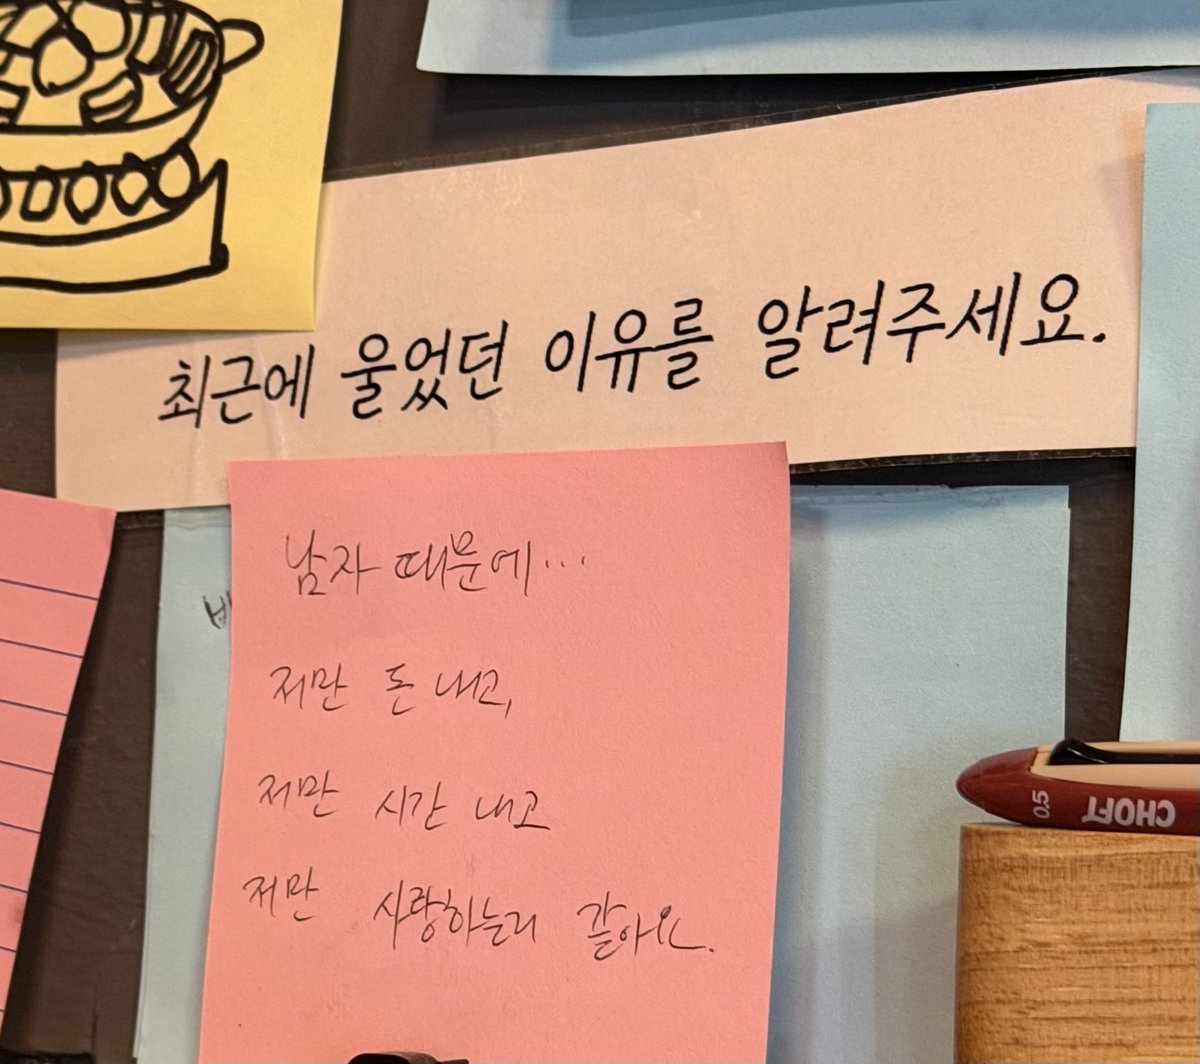 최근에 울었던 이유를 알려주세요.
남자 때문에...
저만 돈 내고,
저만 시간 내고
저만 사랑하는거 같아요.
0.5 CHOFT